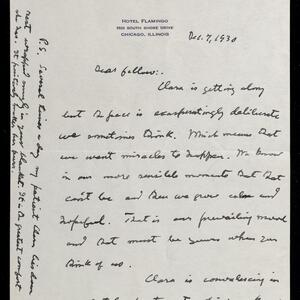 HOTEL FLAMINGO
5520 SOUTH SHORE DRIVE
CHICAGO, ILLINOIS
Dec. 7, 1930
Dear fellow:
Clara is getting along
but the pace is exasperatingly deliberate
we sometimes think. Which means that
we want miracles to happen. We know
in our more sensible moments that that
can't be and then we grow calm and
hopeful. That is our prevailing mood
and that must be yours when you
think of us.
Clara is convalescing in
P.S. Several times a day my patient lies down
wrapped snugly in your blanket. It is the greatest comfort
she has. It positively makes her purr.